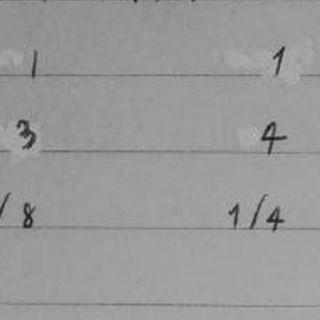 1 1
3 4
/8 1/4